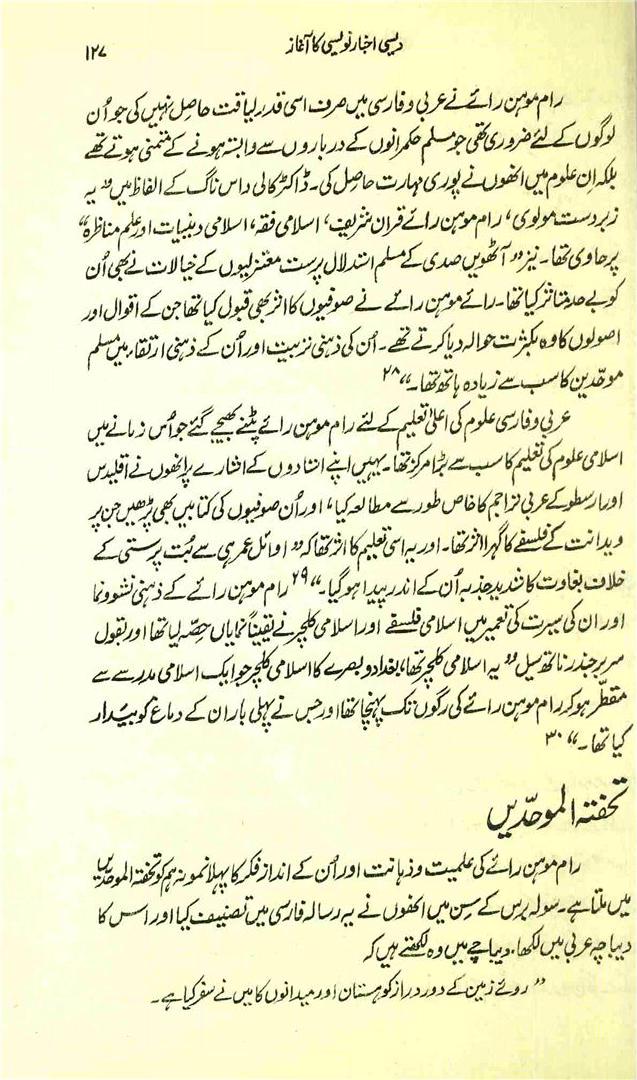 دیسی اخبار نویسی کا آغاز ۱۲۷
رام موہن رائے نے عربی و فارسی میں صرف اسی قدر لیاقت حاصل نہیں کی جو اُن
لوگوں کے لئے ضروری تھی جو مسلم حکمرانوں کے درباروں سے وابستہ ہونے کے متمنی ہوتے تھے
بلکہ اِن علوم میں انھوں نے پوری مہارت حاصل کی۔ ڈاکٹر کالی داس ناگ کے الفاظ میں ”یہ
زبردست مولوی، رام موہن رائے قرآن شریف، اسلامی فقہ، اسلامی دینیات اور علم مناظرہ“
پر حاوی تھا۔ نیز ”آٹھویں صدی کے مسلم استدلال پرست معتزلیوں کے خیالات نے بھی اُن
کو بے حد متاثر کیا تھا۔ رائے موہن رائے نے صوفیوں کا اثر بھی قبول کیا تھا جن کے اقوال اور
اصولوں کا وہ بکثرت حوالہ دیا کرتے تھے۔ اُن کی ذہنی تربیت اور اُن کے ذہنی ارتقاء میں مسلم
موحّدین کا سب سے زیادہ ہاتھ تھا۔“ ۲۸
عربی و فارسی علوم کی اعلیٰ تعلیم کے لئے رام موہن رائے پٹنے بھیجے گئے جو اُس زمانے میں
اسلامی علوم کی تعلیم کا سب سے بڑا مرکز تھا۔ یہیں اپنے استادوں کے اشارے پر انھوں نے اقلیدس
اور ارسطو کے عربی تراجم کا خاص طور سے مطالعہ کیا، اور اُن صوفیوں کی کتابیں بھی پڑھیں جن پر
ویدانت کے فلسفے کا گہرا اثر تھا۔ اور یہ اسی تعلیم کا اثر تھا کہ ”اوائل عمر ہی سے بُت پرستی کے
خلاف بغاوت کا شدید جذبہ اُن کے اندر پیدا ہو گیا۔“ ۲۹ رام موہن رائے کے ذہنی نشوونما
اور ان کی سیرت کی تعمیر میں اسلامی فلسفے اور اسلامی کلچر نے یقیناً نمایاں حصّہ لیا تھا اور بقول
سر برجندر ناتھ سیل ”یہ اسلامی کلچر تھا، بغداد و بصرے کا اسلامی کلچر جو ایک اسلامی مدرسے سے
مقطّر ہو کر رام موہن رائے کی رگوں تک پہنچا تھا اور جس نے پہلی بار ان کے دماغ کو بیدار
کیا تھا۔“ ۳۰
تحفتہ الموحدّیں
رام موہن رائے کی علمیت و ذہانت اور اُن کے انداز فکر کا پہلا نمونہ ہم کو تحفتہ الموحدّیں
میں ملتا ہے۔ سولہ برس کے سِن میں انھوں نے یہ رسالہ فارسی میں تصنیف کیا اور اس کا
دیباچہ عربی میں لکھا۔ دیباچے میں وہ لکھتے ہیں کہ
”روئے زمین کے دور دراز کوہستان اور میدانوں کا میں نے سفر کیا ہے۔